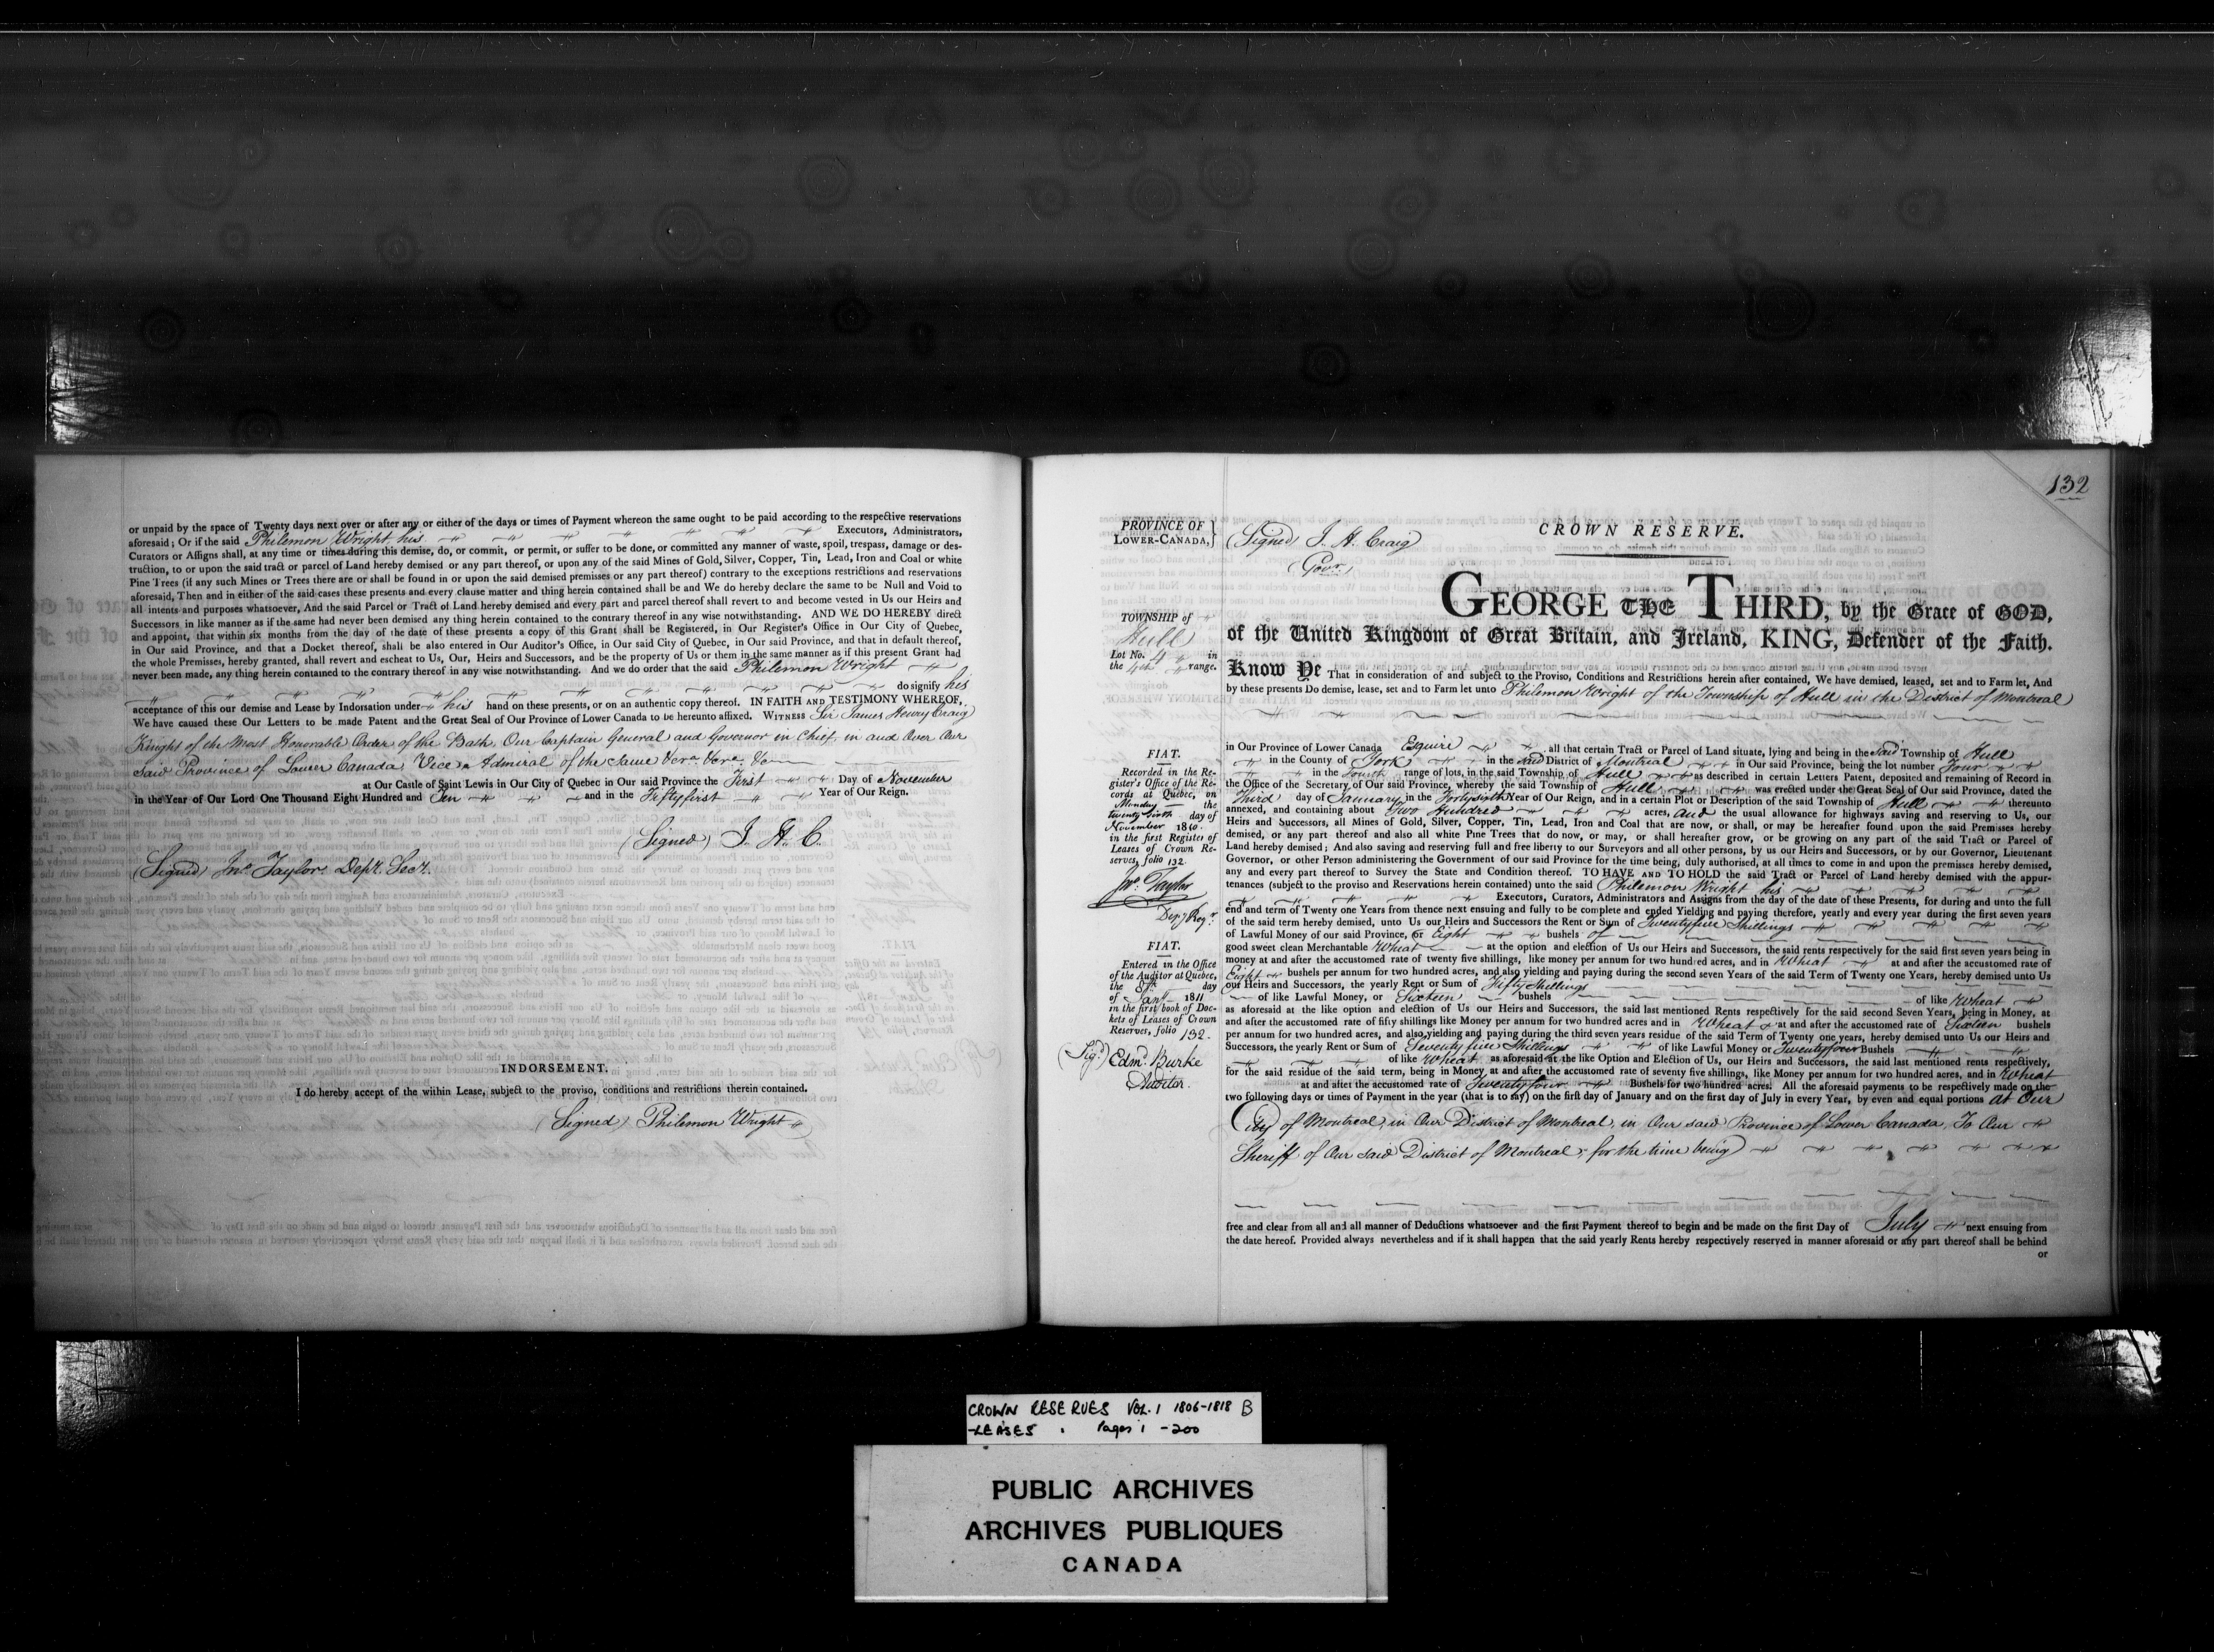 or unpaid by the space of Twenty days next over or after any or either of the days or times of Payment whereon the same ought to be paid according to the respective reservations
aforesaid; Or if the said Philemon Wright his Executors, Administrators,
Curators or Assigns shall, at any time or times during this demise, do, or commit, or permit, or suffer to be done, or committed any manner of waste, spoil, trespass, damage or des-
truction, to or upon the said tract or parcel of Land hereby demised or any part thereof, or upon any of the said Mines of Gold, Silver, Copper, Tin, Lead, Iron and Coal or white
Pine Trees (if any such Mines or Trees there are or shall be found in or upon the said demised premises or any part thereof) contrary to the exceptions restrictions and reservations
aforesaid, Then and in either of the said cases these presents and every clause matter and thing herein contained shall be and We do hereby declare the same to be Null and Void to
all intents and purposes whatsoever, And the said Parcel or Tract of Land hereby demised and every part and parcel thereof shall revert to and become vested in Us our Heirs and
Successors in like manner as if the same had never been demised any thing herein contained to the contrary thereof in any wise notwithstanding. AND WE DO HEREBY direct
and appoint, that within six months from the day of the date of these presents a copy of this Grant shall be Registered, in Our Register's Office in Our City of Quebec,
in Our said Province, and that a Docket thereof, shall be also entered in Our Auditor's Office, in Our said City of Quebec, in Our said Province, and that in default thereof,
the whole Premises, hereby granted, shall revert and escheat to Us, Our, Heirs and Successors, and be the property of Us or them in the same manner as if this present Grant had
never been made, any thing herein contained to the contrary thereof in any wise notwithstanding. And we do order that the said Philemon Wright
do signify his
acceptance of this our demise and Lease by Indorsation under his hand on these presents, or on an authentic copy thereof. IN FAITH AND TESTIMONY WHEREOF,
We have caused these Our Letters to be made Patent and the Great Seal of Our Province of Lower Canada to be hereunto affixed. WITNESS Sir James Henry Craig
Knight of the Most Honorable Order of the Bath, Our Captain General and Governor in Chief, in and Over Our
said Province of Lower Canada, Vice Admiral of the same &c. &c. &c.
at Our Castle of Saint Lewis in Our City of Quebec in Our said Province the First Day of November
in the Year of Our Lord One Thousand Eight Hundred and Ten and in the Fifty first Year of Our Reign.
(Signed) J. H. C.
(Signed) Jno. Taylor Depy. Secy.
INDORSEMENT.
I do hereby accept of the within Lease, subject to the proviso, conditions and restrictions therein contained.
(Signed) Philemon Wright
132
PROVINCE OF
LOWER-CANADA, }
(Signed) J. H. Craig
Govr.
CROWN RESERVE.
TOWNSHIP of
Hull
Lot No. 4 in
the 4th range.
GEORGE THE THIRD, by the Grace of GOD,
of the United Kingdom of Great Britain, and Ireland, KING, Defender of the Faith.
Know Ye That in consideration of and subject to the Proviso, Conditions and Restrictions herein after contained, We have demised, leased, set and to Farm let, And
by these presents Do demise, lease, set and to Farm let unto Philemon Wright of the Township of Hull in the District of Montreal
in Our Province of Lower Canada Esquire all that certain Tract or Parcel of Land situate, lying and being in the said Township of Hull
in the County of York in the said District of Montreal in Our said Province, being the lot number Four
in the Fourth range of lots, in the said Township of Hull as described in certain Letters Patent, deposited and remaining of Record in
the Office of the Secretary of Our said Province, whereby the said Township of Hull was erected under the Great Seal of Our said Province, dated the
Third day of January in the Forty sixth Year of Our Reign, and in a certain Plot or Description of the said Township of Hull thereunto
annexed, and containing about Two Hundred acres, and the usual allowance for highways saving and reserving to Us, our
Heirs and Successors, all Mines of Gold, Silver, Copper, Tin, Lead, Iron and Coal that are now, or shall, or may be hereafter found upon the said Premises hereby
demised, or any part thereof and also all white Pine Trees that do now, or may, or shall hereafter grow, or be growing on any part of the said Tract or Parcel of
Land hereby demised; And also saving and reserving full and free liberty to our Surveyors and all other persons, by us our Heirs and Successors, or by our Governor, Lieutenant
Governor, or other Person administering the Government of our said Province for the time being, duly authorised, at all times to come in and upon the premises hereby demised,
any and every part thereof to Survey the State and Condition thereof. TO HAVE AND TO HOLD the said Tract or Parcel of Land hereby demised with the appur-
tenances (subject to the proviso and Reservations herein contained) unto the said Philemon Wright his
Executors, Curators, Administrators and Assigns from the day of the date of these Presents, for during and unto the full
end and term of Twenty one Years from thence next ensuing and fully to be complete and ended Yielding and paying therefore, yearly and every year during the first seven years
of the said term hereby demised, unto Us our Heirs and Successors the Rent or Sum of Twenty five Shillings
of Lawful Money of our said Province, or Eight bushels of
good sweet clean Merchantable Wheat at the option and election of Us our Heirs and Successors, the said rents respectively for the said first seven years being in
money at and after the accustomed rate of twenty five shillings, like money per annum for two hundred acres, and in Wheat at and after the accustomed rate of
Eight bushels per annum for two hundred acres, and also yielding and paying during the second seven Years of the said Term of Twenty one Years, hereby demised unto Us
our Heirs and Successors, the yearly Rent or Sum of Fifty Shillings
of like Lawful Money, or Sixteen bushels of like Wheat
as aforesaid at the like option and election of Us our Heirs and Successors, the said last mentioned Rents respectively for the said second Seven Years, being in Money, at
and after the accustomed rate of fifty shillings like Money per annum for two hundred acres and in Wheat at and after the accustomed rate of Sixteen bushels
per annum for two hundred acres, and also yielding and paying during the third seven years residue of the said Term of Twenty one years, hereby demised unto Us our Heirs and
Successors, the yearly Rent or Sum of Seventy five Shillings of like Lawful Money or Twenty four Bushels
of like Wheat as aforesaid at the like Option and Election of Us, our Heirs and Successors, the said last mentioned rents respectively,
for the said residue of the said term, being in Money at and after the accustomed rate of seventy five shillings, like Money per annum for two hundred acres, and in Wheat
at and after the accustomed rate of Twenty four Bushels for two hundred acres. All the aforesaid payments to be respectively made on the
two following days or times of Payment in the year (that is to say) on the first day of January and on the first day of July in every Year, by even and equal portions at Our
City of Montreal, in Our District of Montreal, in Our said Province of Lower Canada, To Our
Sheriff of Our said District of Montreal, for the time being
free and clear from all and all manner of Deductions whatsoever and the first Payment thereof to begin and be made on the first Day of July next ensuing from
the date hereof. Provided always nevertheless and if it shall happen that the said yearly Rents hereby respectively reserved in manner aforesaid or any part thereof shall be behind
or
FIAT.
Recorded in the Re-
gister's Office of the Re-
cords at Quebec, on
Monday the
twenty sixth day of
November 1810.
in the first Register of
Leases of Crown Re-
serves, folio 132.
Jno. Taylor
Depy Regr.
FIAT.
Entered in the Office
of the Auditor at Quebec,
the 8th day
of Jany 1811
in the first book of Doc-
kets of Leases of Crown
Reserves, folio 132.
(Sigd.) Edmd. Burke
Auditor.
CROWN RESERVES VOL. 1 1806-1818 B
-LEASES Pages 1 -200
PUBLIC ARCHIVES
ARCHIVES PUBLIQUES
CANADA